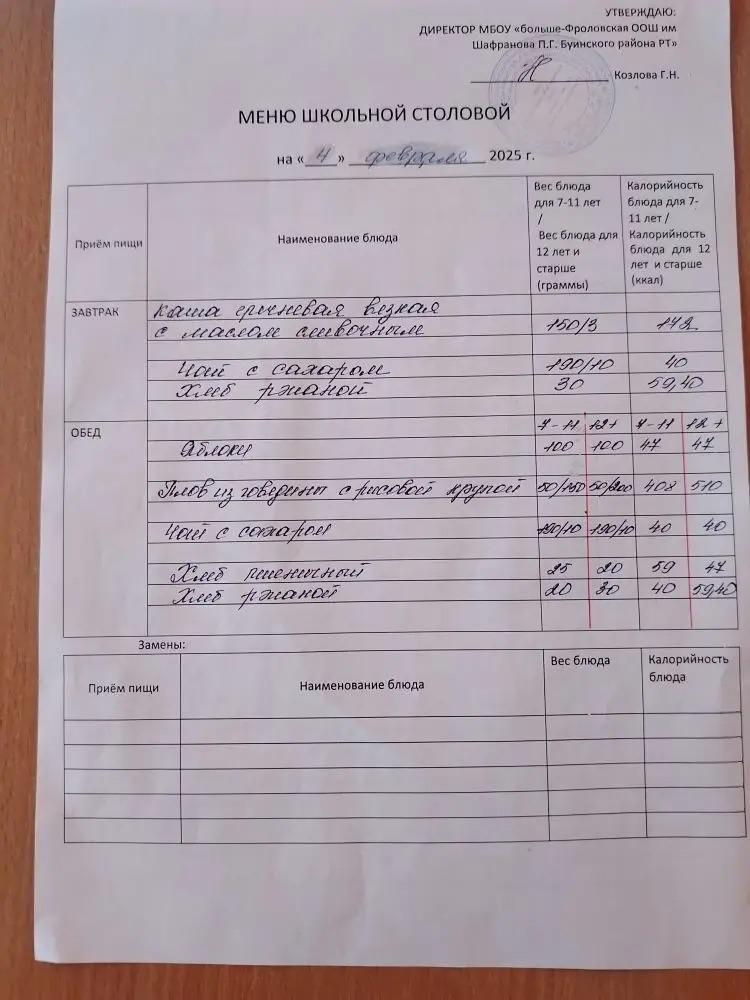 УТВЕРЖДАЮ:
ДИРЕКТОР МБОУ «больше-Фроловская ООШ им
Шафранова П.Г. Буинского района РТ»
Козлова Г.Н.
МЕНЮ ШКОЛЬНОЙ СТОЛОВОЙ
на « 4 » февраля 2025 г.
Приём пищи Наименование блюда Вес блюда для 7-11 лет / Вес блюда для 12 лет и старше (граммы) Калорийность блюда для 7-11 лет / Калорийность блюда для 12 лет и старше (ккал)
ЗАВТРАК Каша гречневая вязкая
с маслом сливочным 150/3 142
Чай с сахаром 190/10 40
Хлеб ржаной 30 59,40
ОБЕД 7-11 12+ 7-11 12+
Яблоки 100 100 47 47
Плов из говядины с рисовой крупой 50/150 50/200 408 510
Чай с сахаром 190/10 190/10 40 40
Хлеб пшеничный 25 20 59 47
Хлеб ржаной 20 30 40 59,40
Замены:
Приём пищи Наименование блюда Вес блюда Калорийность блюда